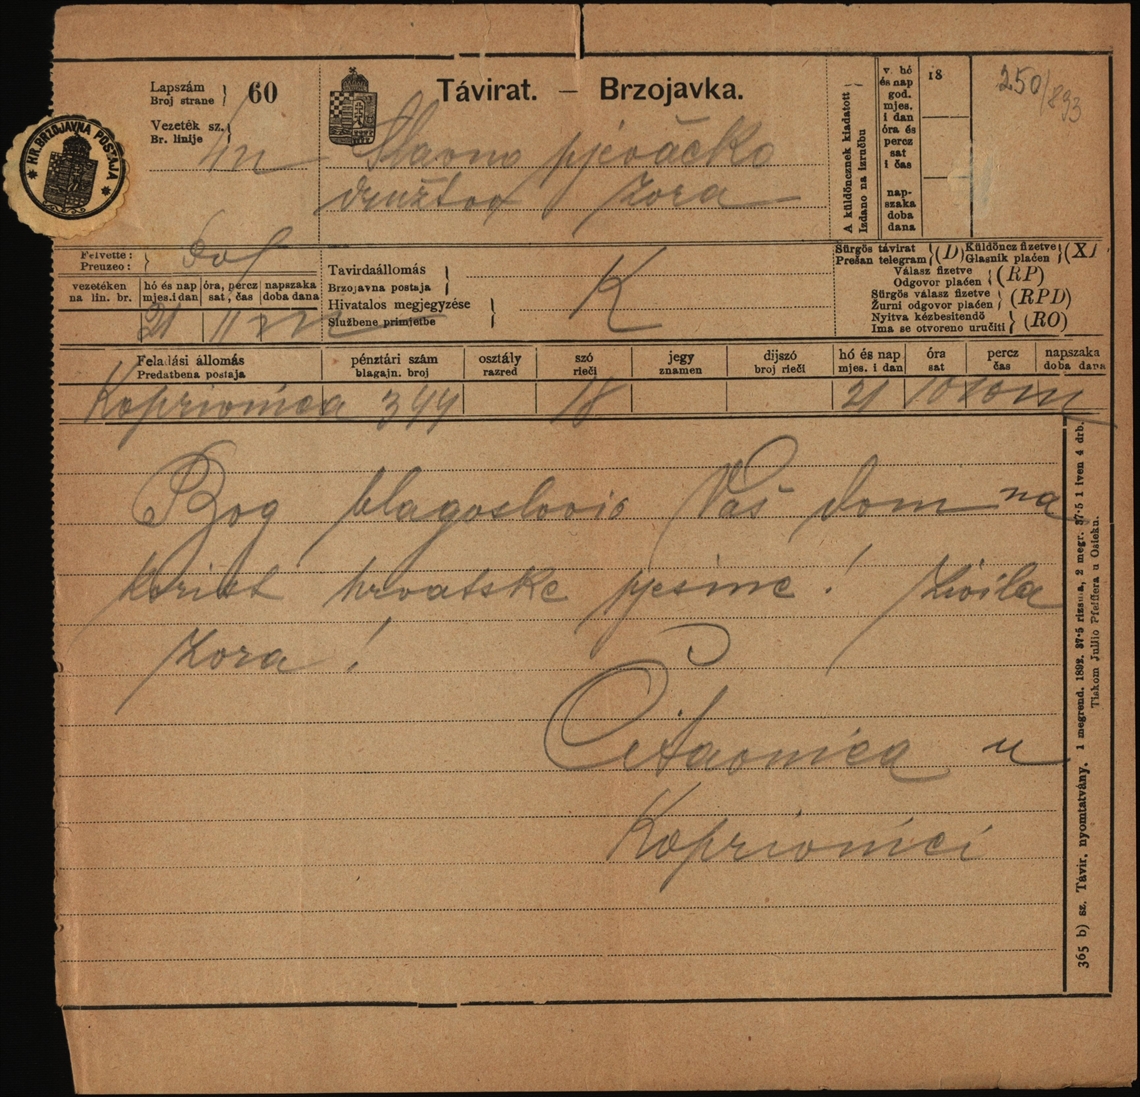 250/893
Lapszám
Broj strane } 60
Vezeték sz.
Br. linije
Távirat. — Brzojavka.
HR. BRZOJAVNA POSTAJA
Slavno pjevačko
družtvo Zora
A küldöncznek kiadatott
Izdano na izručbu
v. hó
és nap
god.
mjes.
i dan
óra és
percz
sat
i čas
nap-
szaka
doba
dana
18
Felvette :
Preuzeo :
vezetéken
na lin. br.
hó és nap
mjes. i dan
óra, percz
sat, čas
napszaka
doba dana
21 11
Tavirdaállomás
Brzojavna postaja
Hivatalos megjegyzése
Službene primjetbe
K
Sürgős távirat
Prešan telegram } (D)
Küldöncz fizetve
Glasnik plaćen } (X)
Válasz fizetve
Odgovor plaćen } (RP)
Sürgős válasz fizetve
Žurni odgovor plaćen } (RPD)
Nyitva kézbesitendő
Ima se otvoreno uručiti } (RO)
Feladási állomás
Predatbena postaja
pénztári szám
blagajn. broj
osztály
razred
szó
rieči
jegy
znamen
dijszó
broj rieči
hó és nap
mjes. i dan
óra
sat
percz
čas
napszaka
doba dana
Koprivnica 344 18 21 10
Bog blagoslovio Vaš dom na
korist hrvatske pjesme! Živila
Zora!
Čitaonica u
Koprivnici
365 b) sz. Távir. nyomtatvány. 1 megrend. 1892. 37·5 rizsma, 2 megr. 37·5 1 iven 4 drb.
Tiskom Julijo Pfeiffera u Osieku.